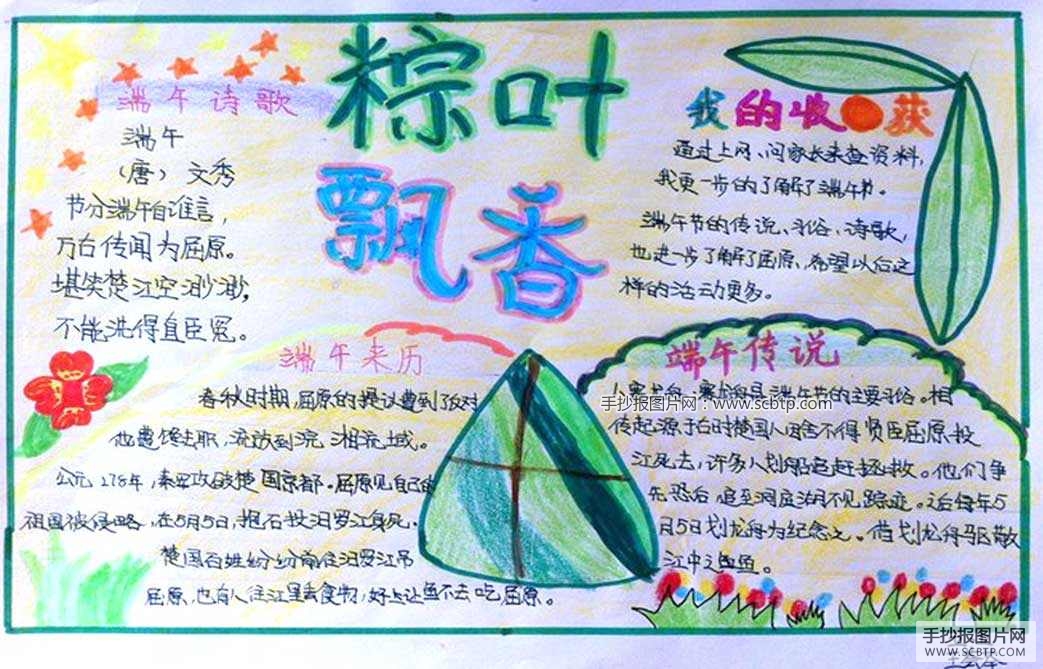 粽叶
飘香
端午诗歌
端午
(唐) 文秀
节分端午自谁言,
万古传闻为屈原。
堪笑楚江空渺渺,
不能洗得直臣冤。
我的收获
通过上网、问家长来查资料,
我更一步的了解了端午节。
端午节的传说、习俗、诗歌,
也进一步了解了屈原,希望以后这
样的活动更多。
端午来历
春秋时期,屈原的提议遭到了反对
他遭馋去职,流放到沅 湘流域。
公元278年,秦军攻破楚国京都。屈原见自己的
祖国被侵略,在5月5日,抱石投汨罗江身死,
楚国百姓纷纷前往汨罗江吊
屈原,也有人往江里丢食物,好让鱼不去吃屈原。
端午传说
是端午节的主要习俗。相
手抄报图片网:www.scbtp.com
传起源于古时楚国人因舍不得贤臣屈原投
江死去,许多人划船追赶拯救。他们争
先恐后,追至洞庭湖不见踪迹。之后每年5
月5日划龙舟为纪念之。借划龙舟驱散
江中之鱼。
手抄报图片网
WWW.SCBTP.COM